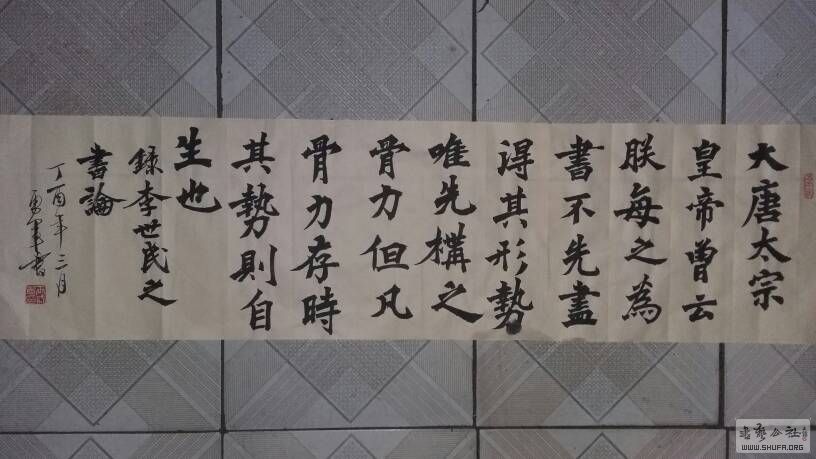 大唐太宗
皇帝曾云
朕每之為
書不先盡
淂其形勢
唯先構之
骨力但凡
骨力存時
其勢則自
生也
錄李世民之
書論
丁酉年三月
書藝公社
WWW.SHUFA.ORG